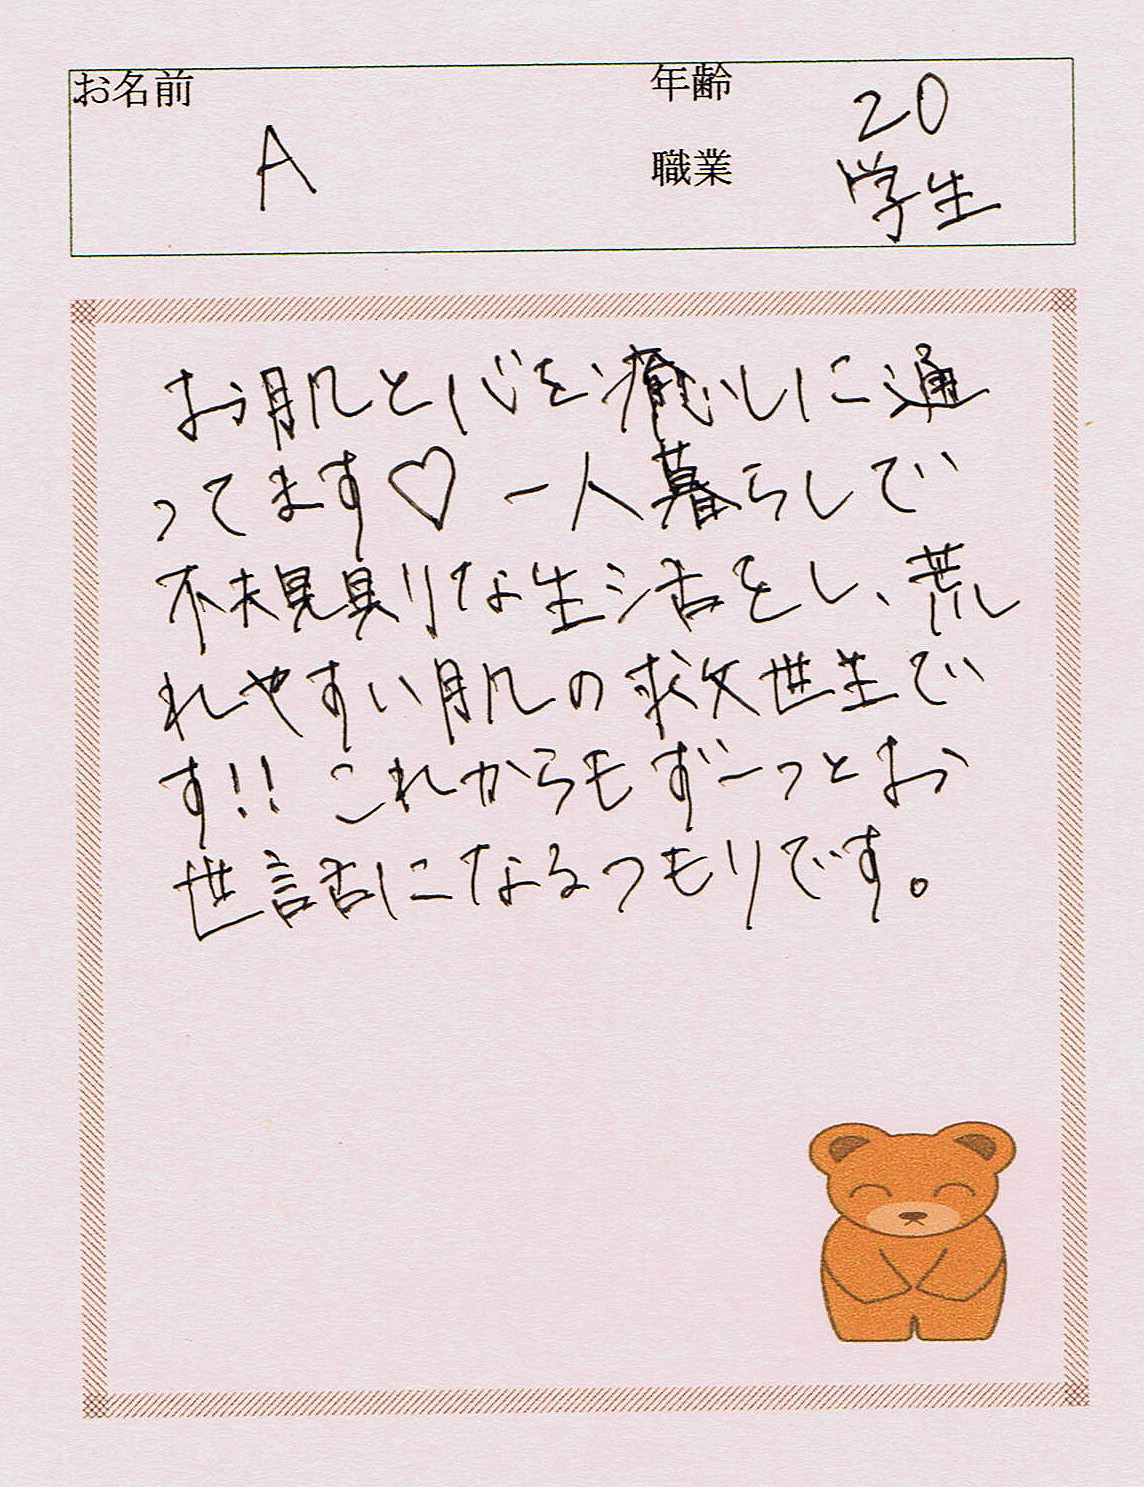 お名前
年齢
20
A
職業
学生
お肌と心を癒しに通
ってます♡ 一人暮らしで
不規則な生活をし、荒
れやすい肌の救世主で
す!! これからもずーっとお
世話になるつもりです。